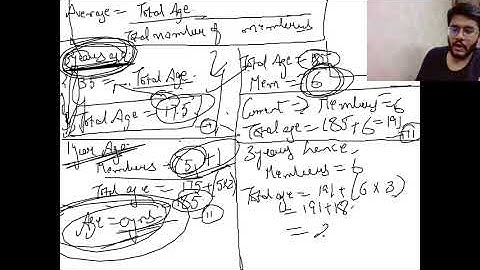 Average = Total Age
Total number of members
3 years ago
35 = Total Age
Total Age = 175
1 year Ago
Members = 5+1
Total age = 175+(5x2)
185
Age = 0 yrs
II
Total Age = 185
Mem = 6
Current => Members = 6
Total age = 185+6=191
III
3 years hence
Members = 6
Total age = 191+(6x3)
= 191+18
=